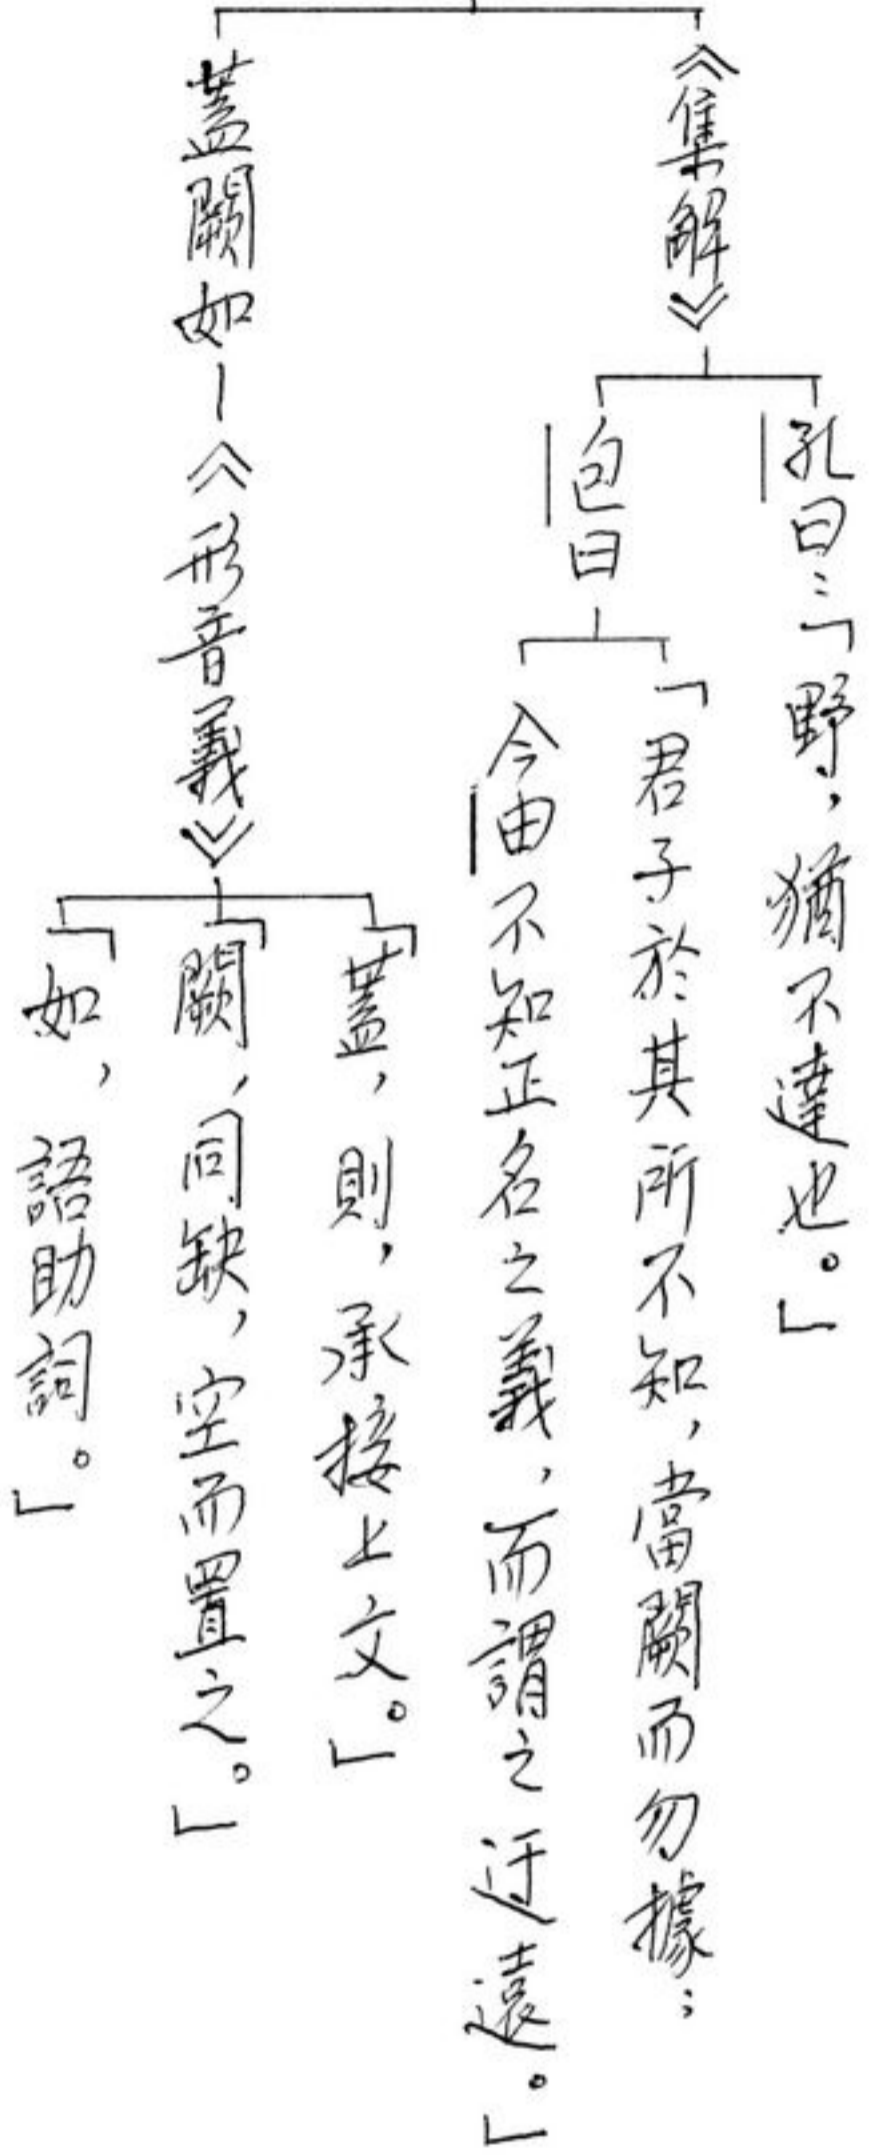 《集解》
孔曰：「野，猶不達也。」
包曰
「君子於其所不知，當闕而勿據；
今由不知正名之義，而謂之迂遠。」
蓋闕如—《形音義》
「蓋，則，承接上文。」
「闕，同缺，空而置之。」
「如，語助詞。」